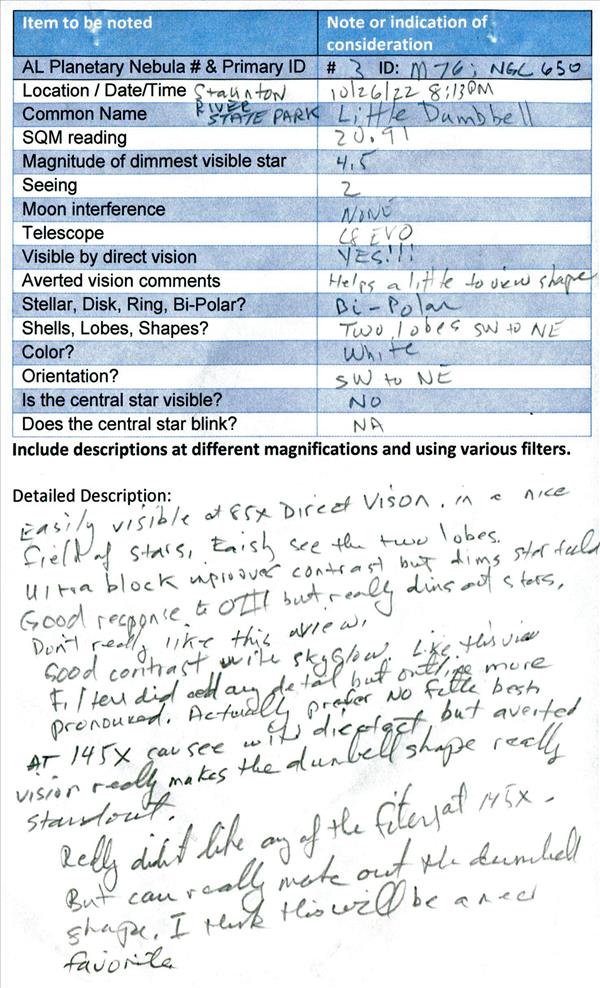 Item to be noted Note or indication of consideration
AL Planetary Nebula # & Primary ID # 3 ID: M76; NGC 650
Location / Date/Time Staunton River State Park 10/26/22 8:13PM
Common Name Little Dumbbell
SQM reading 20.91
Magnitude of dimmest visible star 4.5
Seeing 2
Moon interference NONE
Telescope C8 EVO
Visible by direct vision YES!!!
Averted vision comments Helps a little to view shape
Stellar, Disk, Ring, Bi-Polar? Bi-Polar
Shells, Lobes, Shapes? Two lobes SW to NE
Color? White
Orientation? SW to NE
Is the central star visible? NO
Does the central star blink? NA
Include descriptions at different magnifications and using various filters.
Detailed Description:
Easily visible at 85x Direct Vison. in a nice
field of stars, see the two lobes.
Ultra block contrast but dims star field
Good response to OIII but really dims out stars.
Don't really like this view.
Good contrast with skyglow. Like this view
Filter did add any detail but outline more
pronounced. Actually prefer No best
AT 145X can see with direct but averted
vision really makes the dumbell shape really
standout.
Really didn't like any of the filters at 145X.
But can really make out the dumbell
shape. I think this will be a new
favorite